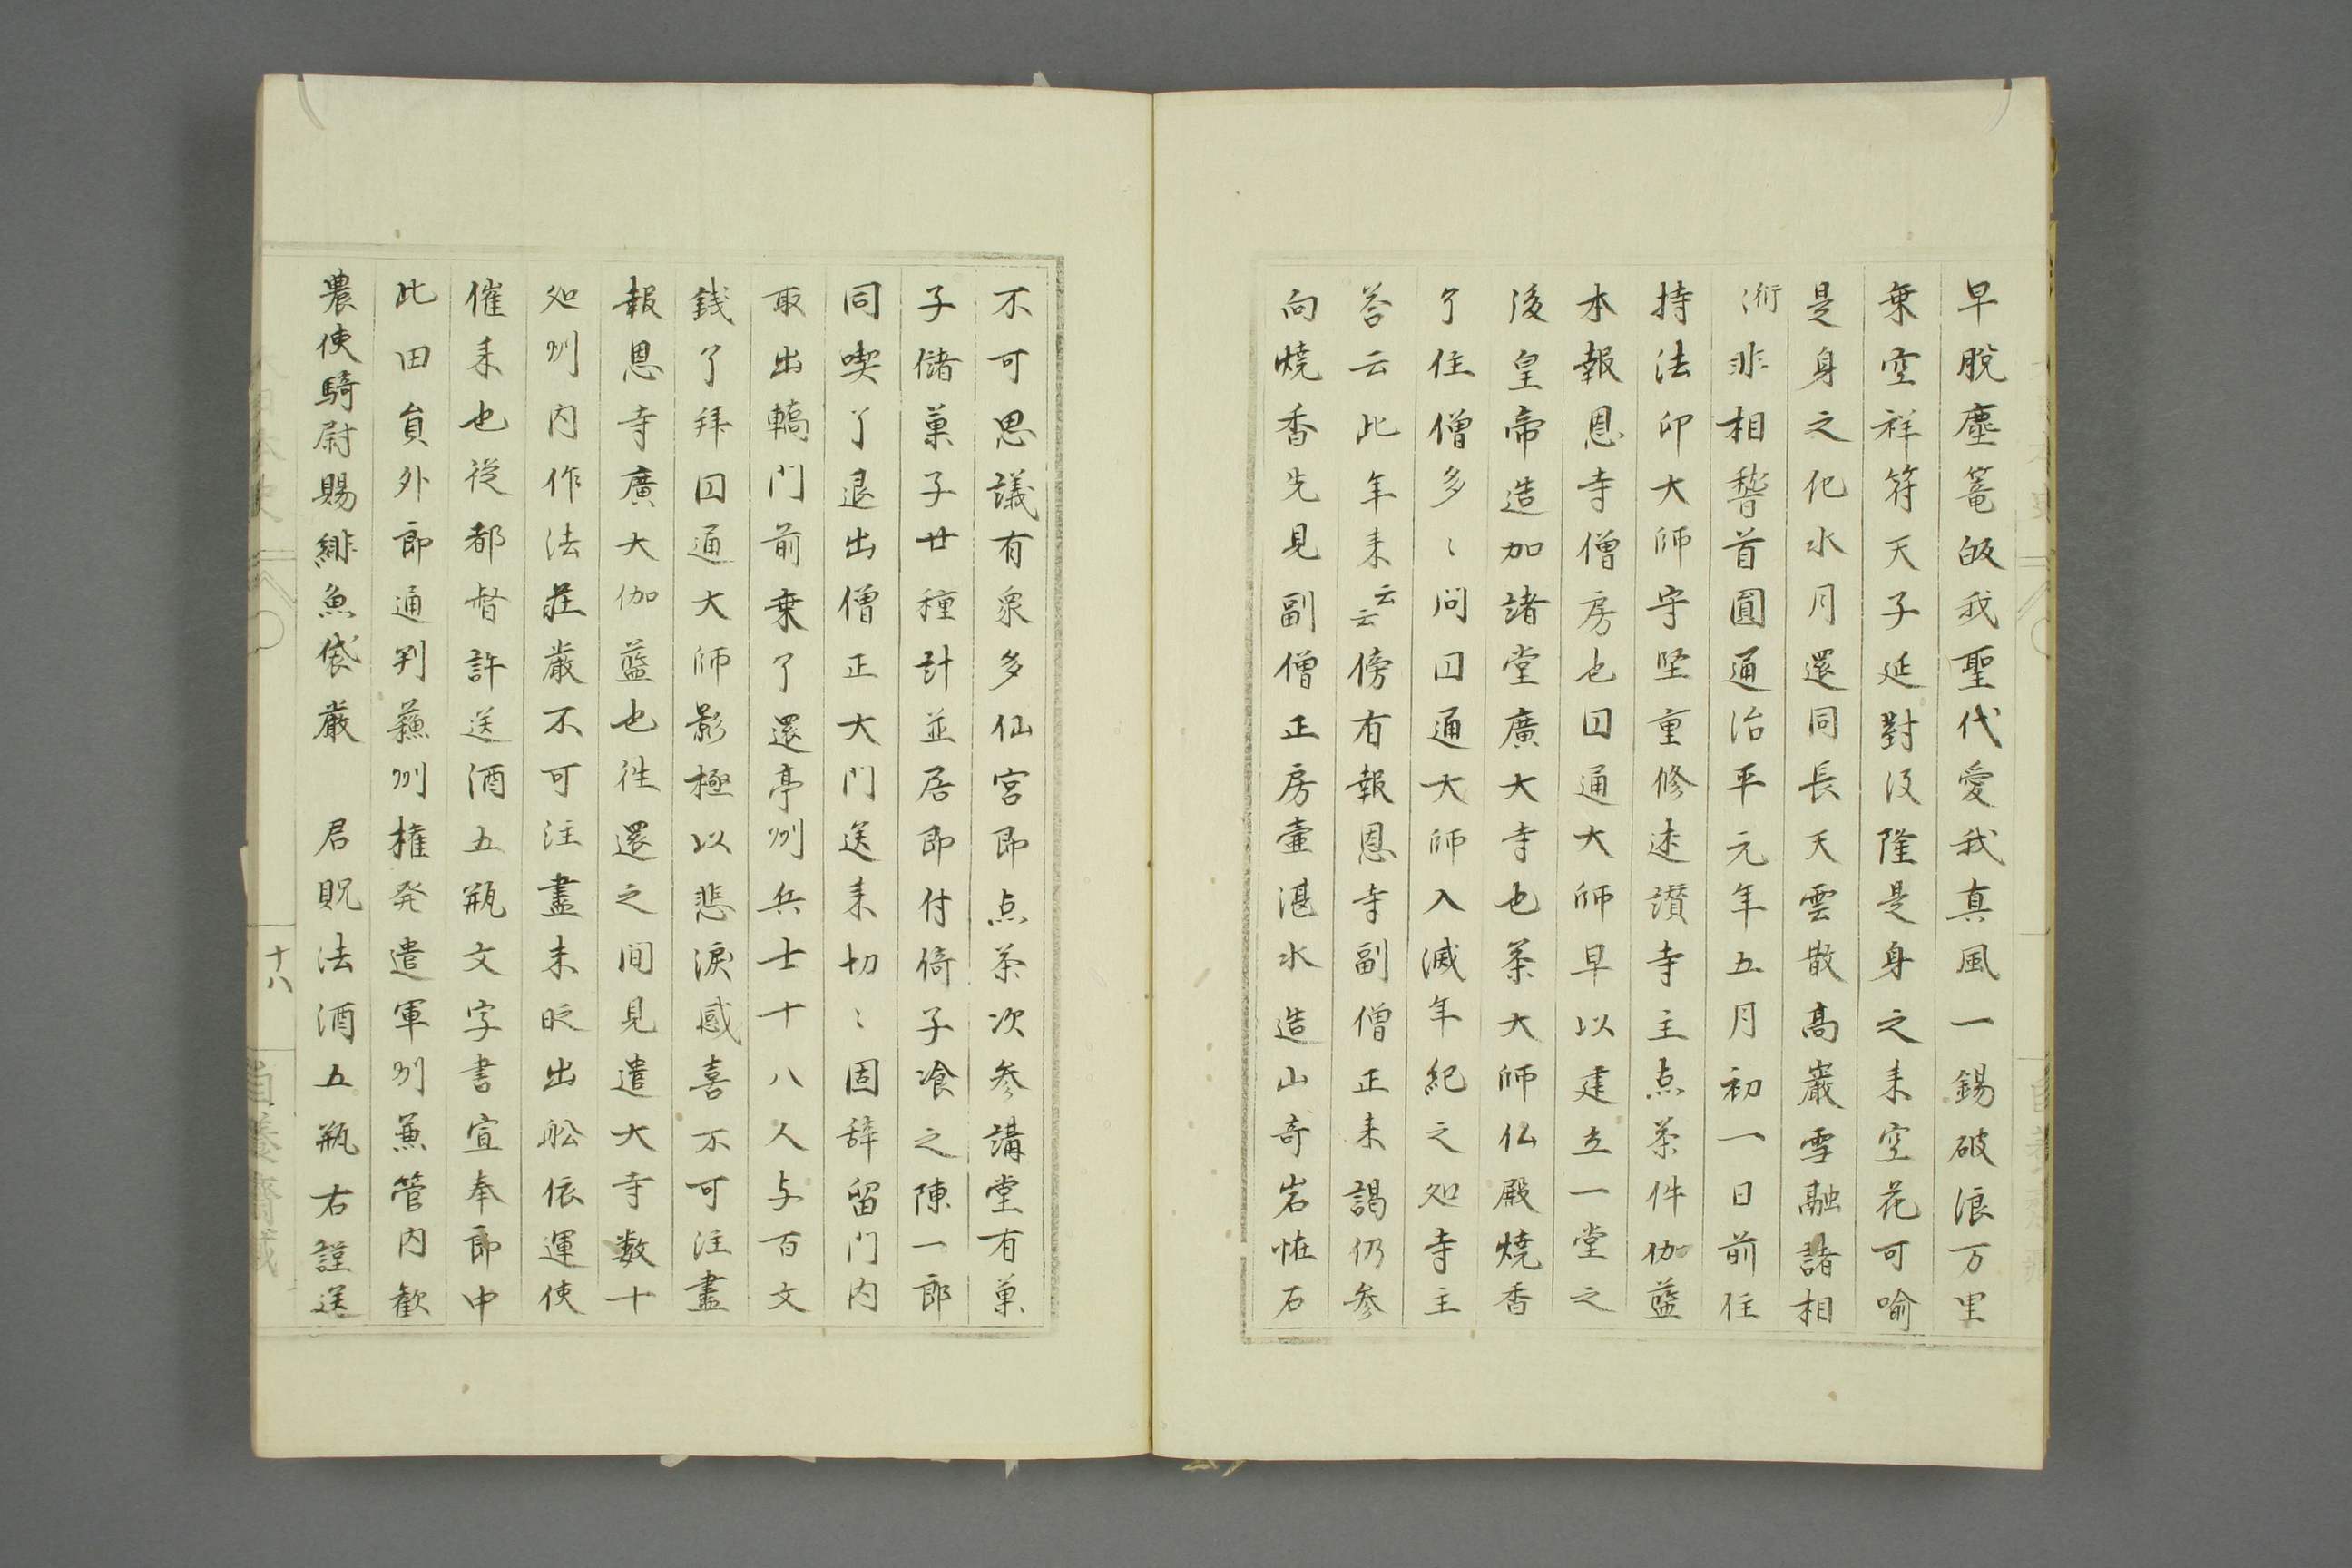 早脱塵篭皈我聖代愛我真風一錫破浪万里
乗空祥符天子延對汲隆是身之来空花可喩
是身之化水月還同長天雲散高巖雪融諸相
非相稽首圓通治平元年五月初一日前住
持法印大師守堅重修述讃寺主点茶件伽藍
本報恩寺僧房也囙通大師早以建立一堂之
後皇帝造加諸堂廣大大寺也茶大師仏殿焼香
了住僧多〻問囙通大師入滅年紀之処寺主
荅云此年来云云傍有報恩寺副僧正来謁仍参
向焼香先見副僧正房壷湛水造山奇岩恠石
不可思議有衆多仙宮即点茶次参講堂有菓
子儲菓子廿種計並居即付倚子飡之陳一郎
同喫了退出僧正大門送来切〻固辞留門内
取出轎門前乗了還亭州兵士十八人与百文
銭了拜囙通大師影極以悲涙感喜不可注盡
報恩寺廣大伽藍也徃還之間見遣大寺数十
処州内作法荘厳不可注盡未時出舩依運使
催来也従都督許送酒五瓶文字書宣奉郎中
此田負外郎通判蘓州権発遣軍州兼管内歓
農使騎尉賜緋魚袋厳　君貺法酒五瓶右謹送
十八